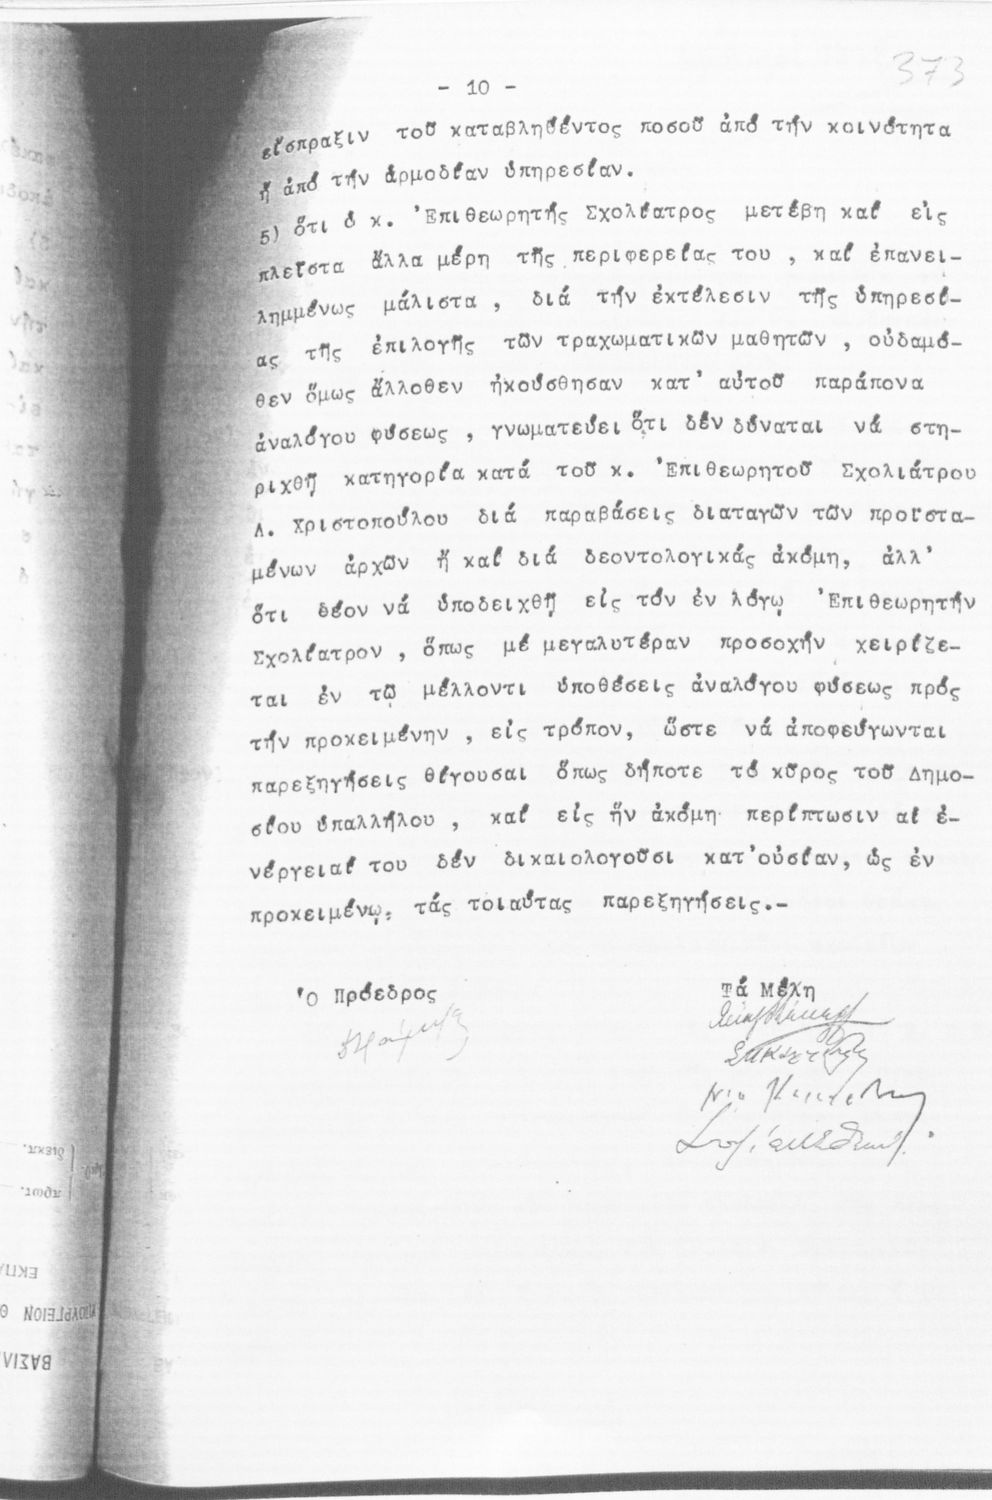 373
- 10 -
εἴσπραξιν τοῦ καταβληθέντος ποσοῦ ἀπό τήν κοινότητα
ἤ ἀπό τήν ἁρμοδίαν ὑπηρεσίαν.
5) ὅτι ὁ κ. Ἐπιθεωρητής Σχολίατρος μετέβη καί εἰς
πλεῖστα ἄλλα μέρη τῆς περιφερείας του , καί ἐπανει-
λημμένως μάλιστα , διά τήν ἐκτέλεσιν τῆς ὑπηρεσί-
ας τῆς ἐπιλογῆς τῶν τραχωματικῶν μαθητῶν , οὐδαμό-
θεν ὅμως ἄλλοθεν ἠκούσθησαν κατ' αὐτοῦ παράπονα
ἀναλόγου φύσεως , γνωματεύει ὅτι δέν δύναται νά στη-
ριχθῇ κατηγορία κατά τοῦ κ. Ἐπιθεωρητοῦ Σχολιάτρου
Λ. Χριστοπούλου διά παραβάσεις διαταγῶν τῶν προϊστα-
μένων ἀρχῶν ἤ καί διά δεοντολογικάς ἀκόμη, ἀλλ'
ὅτι δέον νά ὑποδειχθῇ εἰς τόν ἐν λόγῳ Ἐπιθεωρητήν
Σχολίατρον , ὅπως μέ μεγαλυτέραν προσοχήν χειρίζε-
ται ἐν τῷ μέλλοντι ὑποθέσεις ἀναλόγου φύσεως πρός
τήν προκειμένην , εἰς τρόπον, ὥστε νά ἀποφεύγωνται
παρεξηγήσεις θίγουσαι ὅπως δήποτε τό κῦρος τοῦ Δημο-
σίου ὑπαλλήλου , καί εἰς ἥν ἀκόμη περίπτωσιν αἱ ἐ-
νέργειαί του δέν δικαιολογοῦσι κατ'οὐσίαν, ὡς ἐν
προκειμένῳ, τάς τοιαύτας παρεξηγήσεις.-
Ὁ Πρόεδρος Τά Μέλη